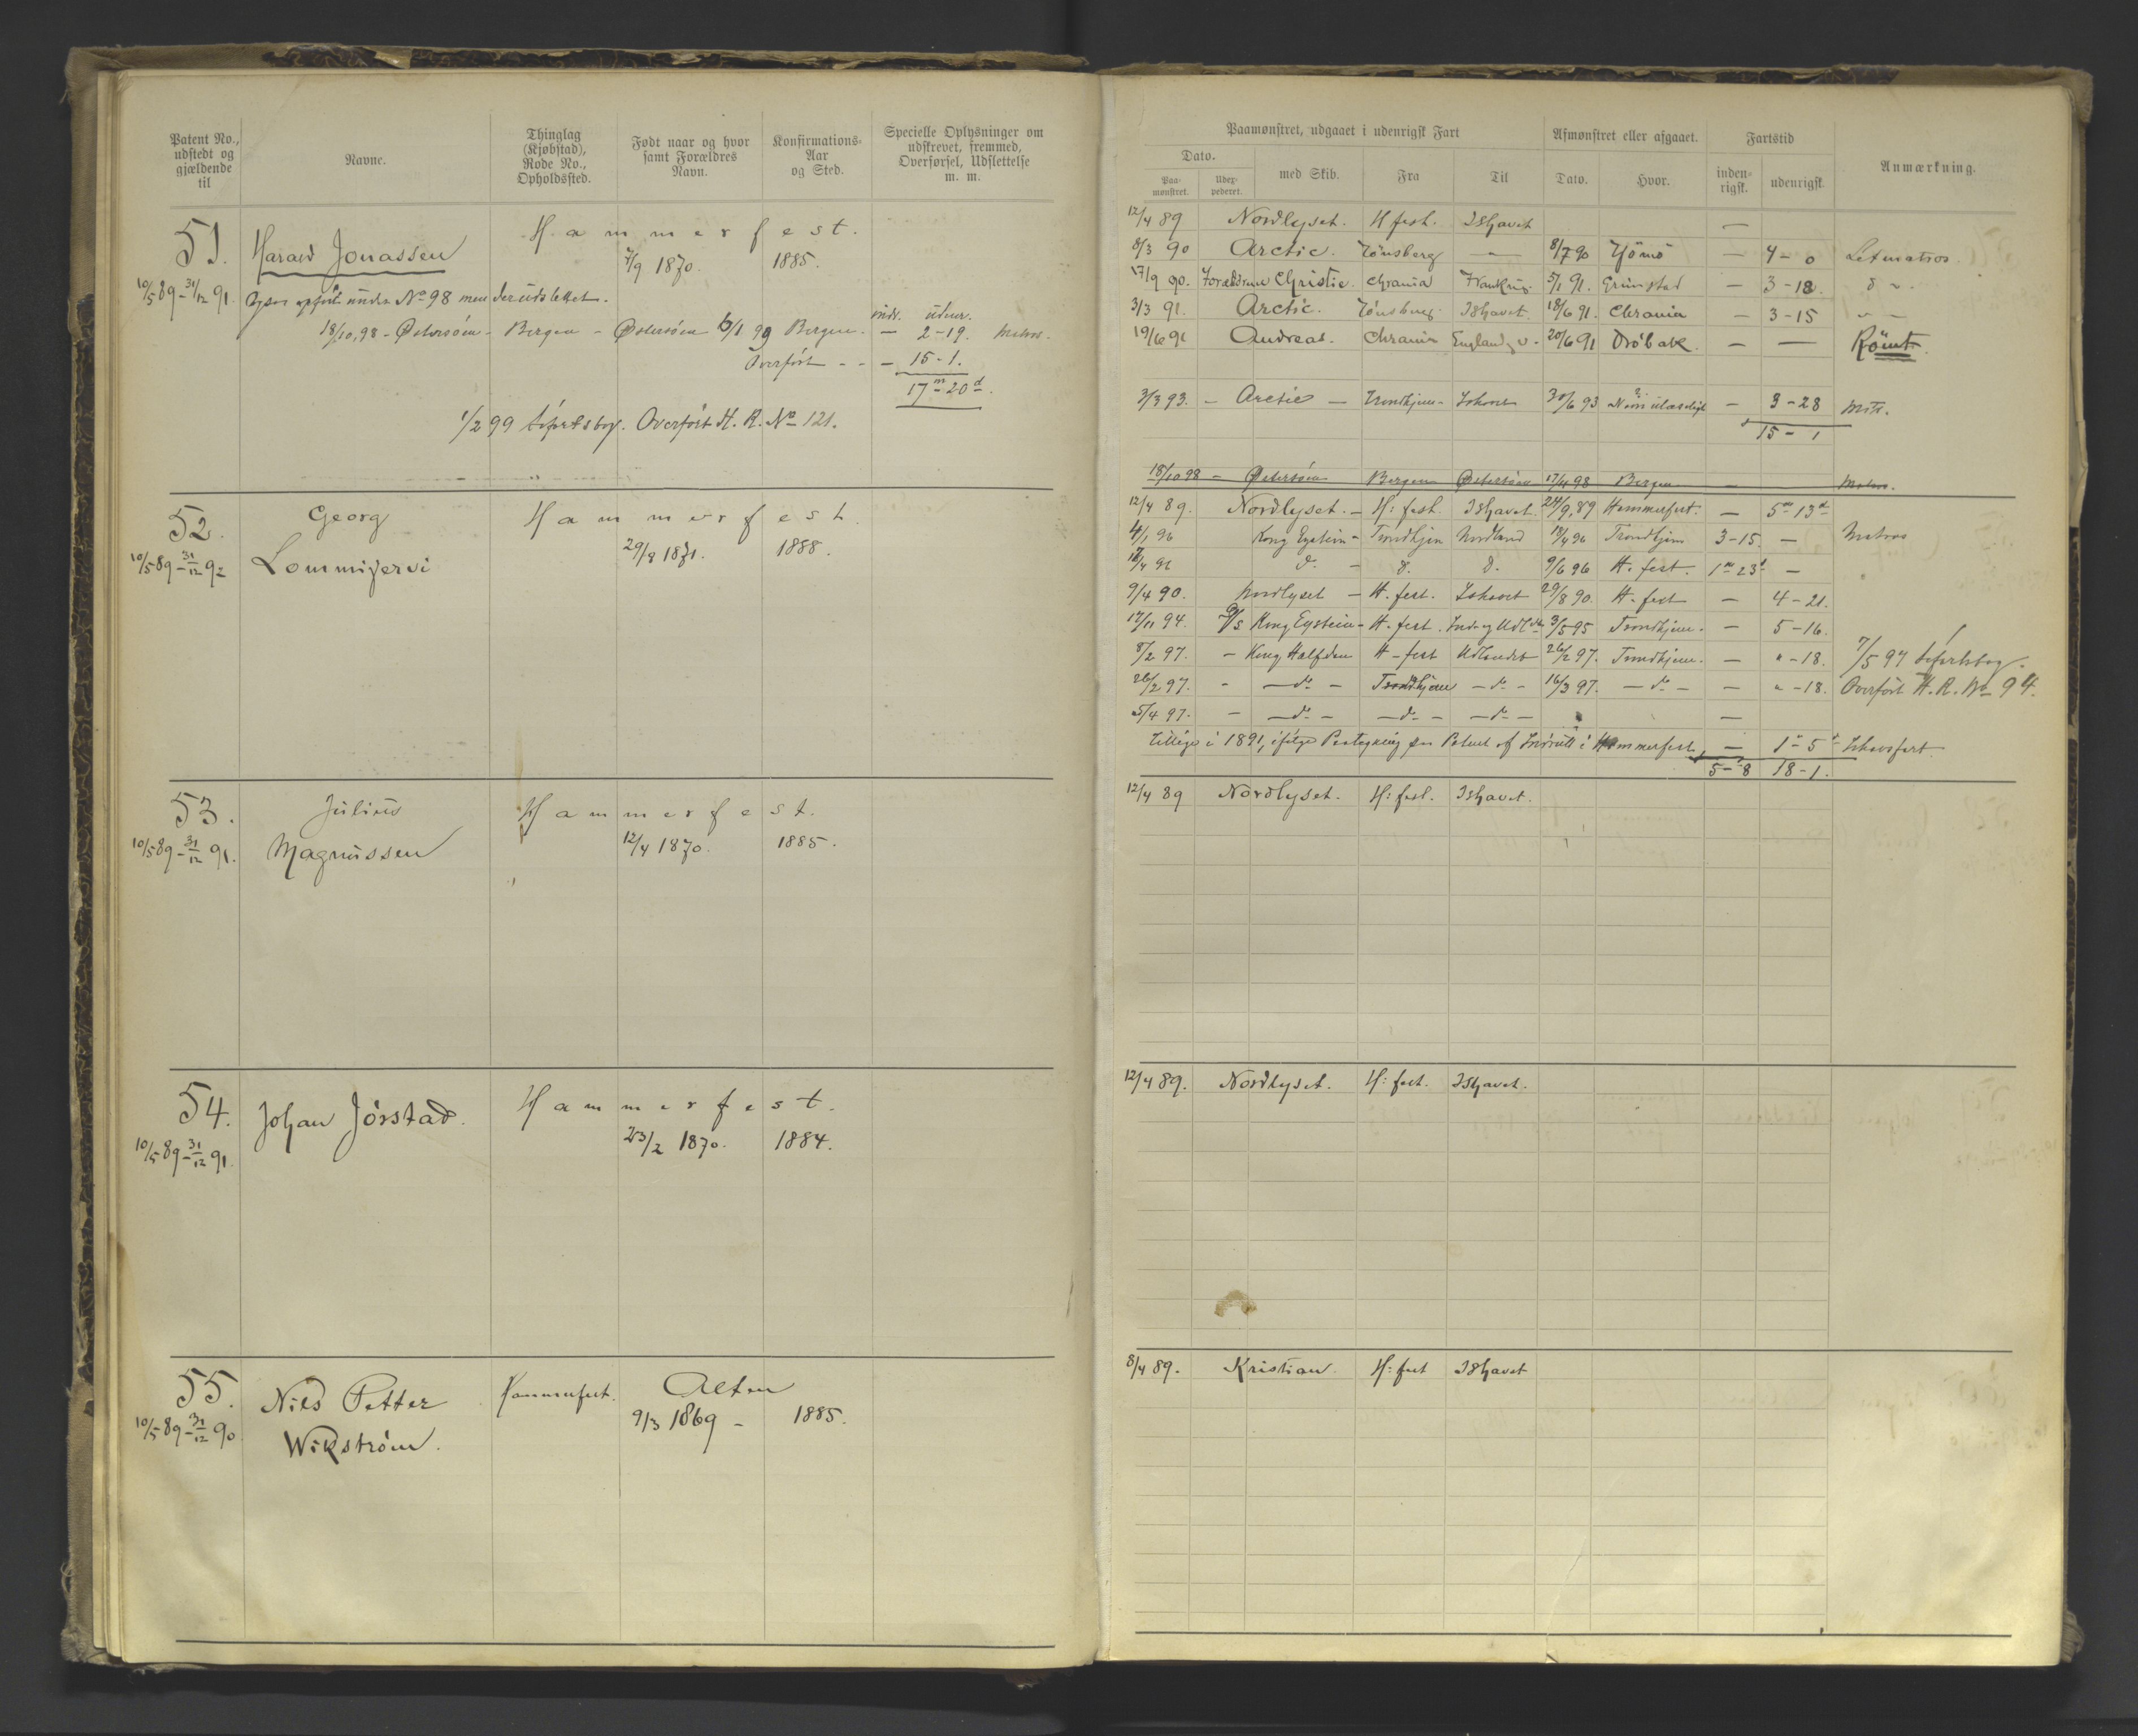 Patent No., udstedt og gjældende til
Navne.
Thinglag (Kjøbstad), Rode No., Opholdssted.
Født naar og hvor samt Forældres Navn.
Konfirmations-Aar og Sted.
Specielle Oplysninger om udskrevet, fremmed, Overførsel, Udslettelse m. m.
51. Harald Jonassen Hammerfest.
7/9 1870. 1885.
10/5 89 - 31/12 91. Ogsaa opført under No 98 men der udslettet.
indr. udenr.
18/10,98 - Østersøen - Bergen - Østersøen 6/1 99 Bergen. — 2-19. Matros.
Overført - - — 15-1.
17m 20d.
1/2 99 Søfartsbog. Overført H. R. No 121.
52. Georg Hammerfest
10/5 89 - 31/12 92 Lommijervi 29/8 1871. 1888.
53. Julius Hammerfest.
10/5 89 - 31/12 91. Magnussen 12/4 1870. 1885.
54. Johan Jörstad. Hammerfest.
10/5 89 - 31/12 91. 23/2 1870. 1884.
55. Nils Petter Hammerfest. Alten
10/5 89 - 31/12 90 Wikström. 9/3 1869 - 1885.
Paamønstret, udgaaet i udenrigsk Fart
Afmønstret eller afgaaet.
Fartstid
Anmærkning.
Dato.
Paa-mønstret.
Udex-pederet.
med Skib.
Fra
Til
Dato.
Hvor.
inden-rigsk.
udenrigsk.
12/4 89 Nordlyset. H fest. Ishavet —
8/3 90 Arctic. Tönsberg — 8/7 90 Tjömö — 4-0 Letmatros
17/9 90. Forældrene Christie. Chrania Frankrig. 5/1 91. Grimstad — 3-18. d
3/3 91. Arctic. Tönsberg. Ishavet. 18/6 91. Chrania — 3-15 " —
19/6 91 Andreas. Chrania England 20/6 91 Dröbak. — — Römt.
3/3 93. - Arctic - Trondhjem - Ishavet 30/6 93 Navn ulæseligt — 3-28 Mts.
15-1
18/10 98 - Østersöen Bergen Østersöen 17/4 98 Bergen — Matros.
12/4 89. Nordlyset. - H: fest. Ishavet. 24/9,89 Hammerfest. — 5m 13d
4/1 96 Kong Eystein - Trondhjem Nordland 18/4 96 Trondhjem 3-15. — Matros
18/4 96 do - d. d. 9/6 96 H. fest. 1m 23d —
9/4 90. Nordlyset - H. fest. Ishavet 29/8 90. H. fest — 4-21.
17/11 94. D/s Kong Eystein - H. fest. Ind og Udl 3/5 95 Trondhjem. — 5-16.
8/2 97. - Kong Halfdan H-fest Udlandet 26/2 97. Trondhjem. — "-18. 7/5 97 Søfartsbog.
26/2 97. - —do— Trondhjem —do— 16/3 97. —do— — "-18. Overført H. R. No 94.
5/4 97. - —do— —do— —do— —
Tillige i 1891, ifølge Paategning paa Patent af Indrulle i Hammerfest, — 1m 5d Ishavsfart
5-8 18-1.
12/4 89 Nordlyset. H: fest. Ishavet.
12/4 89. Nordlyset. H: fest. Ishavet.
8/4 89. Kristian. H: fest Ishavet